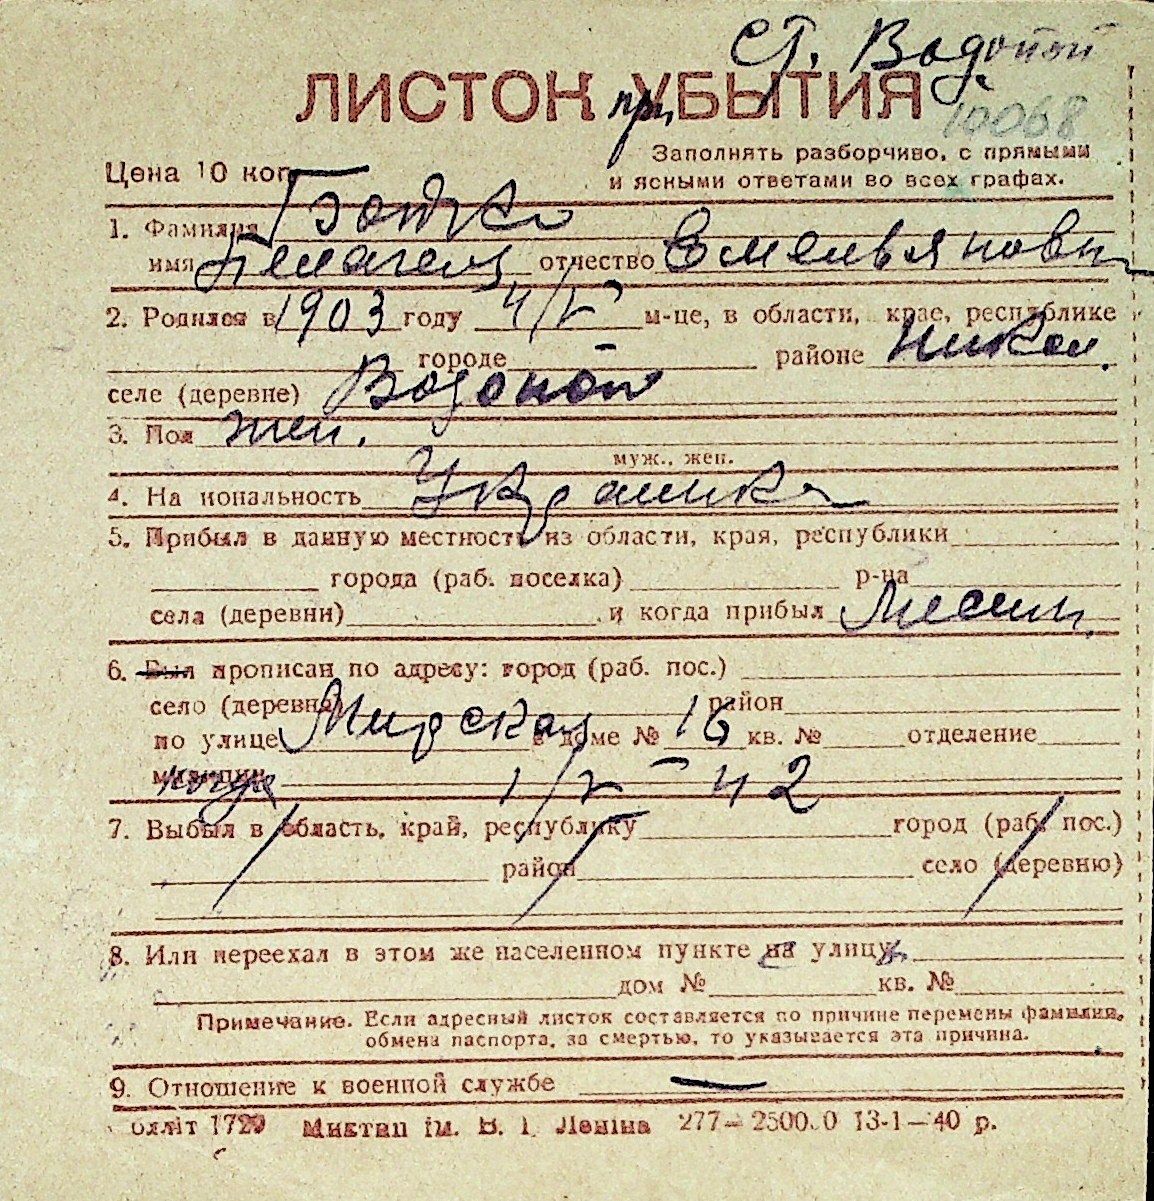 ст. Водопой
ЛИСТОК УБЫТИЯ
при
10068
Цена 10 коп.
Заполнять разборчиво, с прямыми
и ясными ответами во всех графах.
1. Фамилия
имя Пелагея отчество Емельяновн
2. Родился в 1903 году 4/V м-це, в области, крае, республике
городе районе Никол.
селе (деревне) Водопой
3. Пол жен.
муж., жен.
4. На иональность Украинка
5. Прибыл в данную местность из области, края, республики
города (раб. поселка) р-на
села (деревни) и когда прибыл Местн.
6. Был прописан по адресу: город (раб. пос.)
село (деревня) район
по улице Мирская в доме № 16 кв. № отделение
милиции когда 1/V - 42
7. Выбыл в область, край, республику город (раб. пос.)
район село (деревню)
8. Или переехал в этом же населенном пункте на улицу
дом № кв. №
Примечание. Если адресный листок составляется по причине перемены фамилии,
обмена паспорта, за смертью, то указывается эта причина.
9. Отношение к военной службе —
1729 ім. В. І. Леніна 277— 2500.0 13-1—40 р.